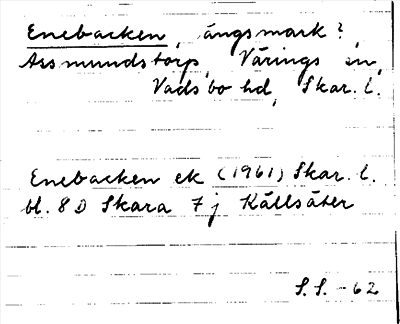 Enebacken, ängsmark?
Assmundstorp, Värings sn,
Vadsbo hd, Skar. l.
Enebacken ek (1961) Skar. l.
bl. 8 D Skara 7 j Källsäter
S.S. -62